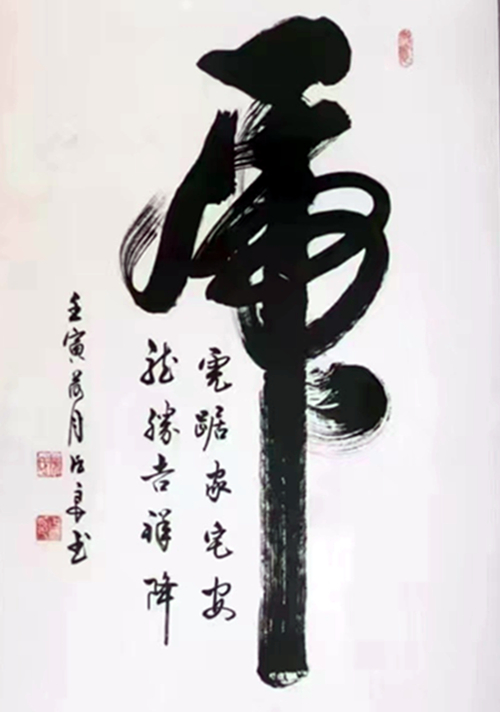 虎
虎踞家宅安
龙胜吉祥降
壬寅荷月
书